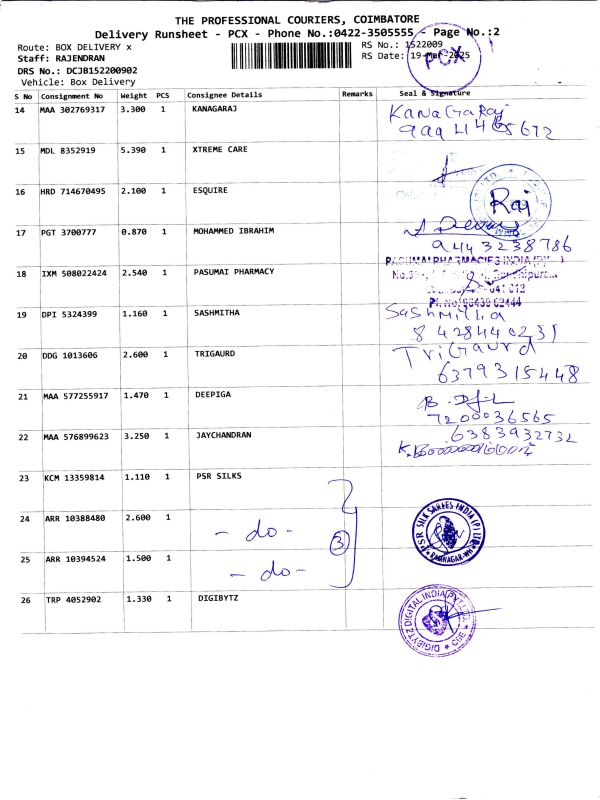 THE PROFESSIONAL COURIERS, COIMBATORE
Delivery Runsheet - PCX - Phone No.:0422-3505555 - Page No.:2
Route: BOX DELIVERY x
RS No.: 1522009
Staff: RAJENDRAN
RS Date: 19-Mar-2025
PCX
DRS No.: DCJB152200902
Vehicle: Box Delivery
S No Consignment No Weight PCS Consignee Details Remarks Seal & Signature
14 MAA 302769317 3.300 1 KANAGARAJ Kanagaraj
15 MDL 8352919 5.390 1 XTREME CARE
16 HRD 714670495 2.100 1 ESQUIRE Raj
17 PGT 3700777 0.870 1 MOHAMMED IBRAHIM
9443238786
18 IXM 508022424 2.540 1 PASUMAI PHARMACY
19 DPI 5324399 1.160 1 SASHMITHA Sashmitha
8428440231
20 DDG 1013606 2.600 1 TRIGAURD TriGaurd
6379315448
21 MAA 577255917 1.470 1 DEEPIGA
7200036565
22 MAA 576899623 3.250 1 JAYCHANDRAN 6383932732
23 KCM 13359814 1.110 1 PSR SILKS
24 ARR 10388480 2.600 1 - do - 3 PSR SILK SAREES INDIA (P) LTD RAMNAGAR
25 ARR 10394524 1.500 1 - do -
26 TRP 4052902 1.330 1 DIGIBYTZ DIGIBYTZ DIGITAL INDIA PVT LTD CBE